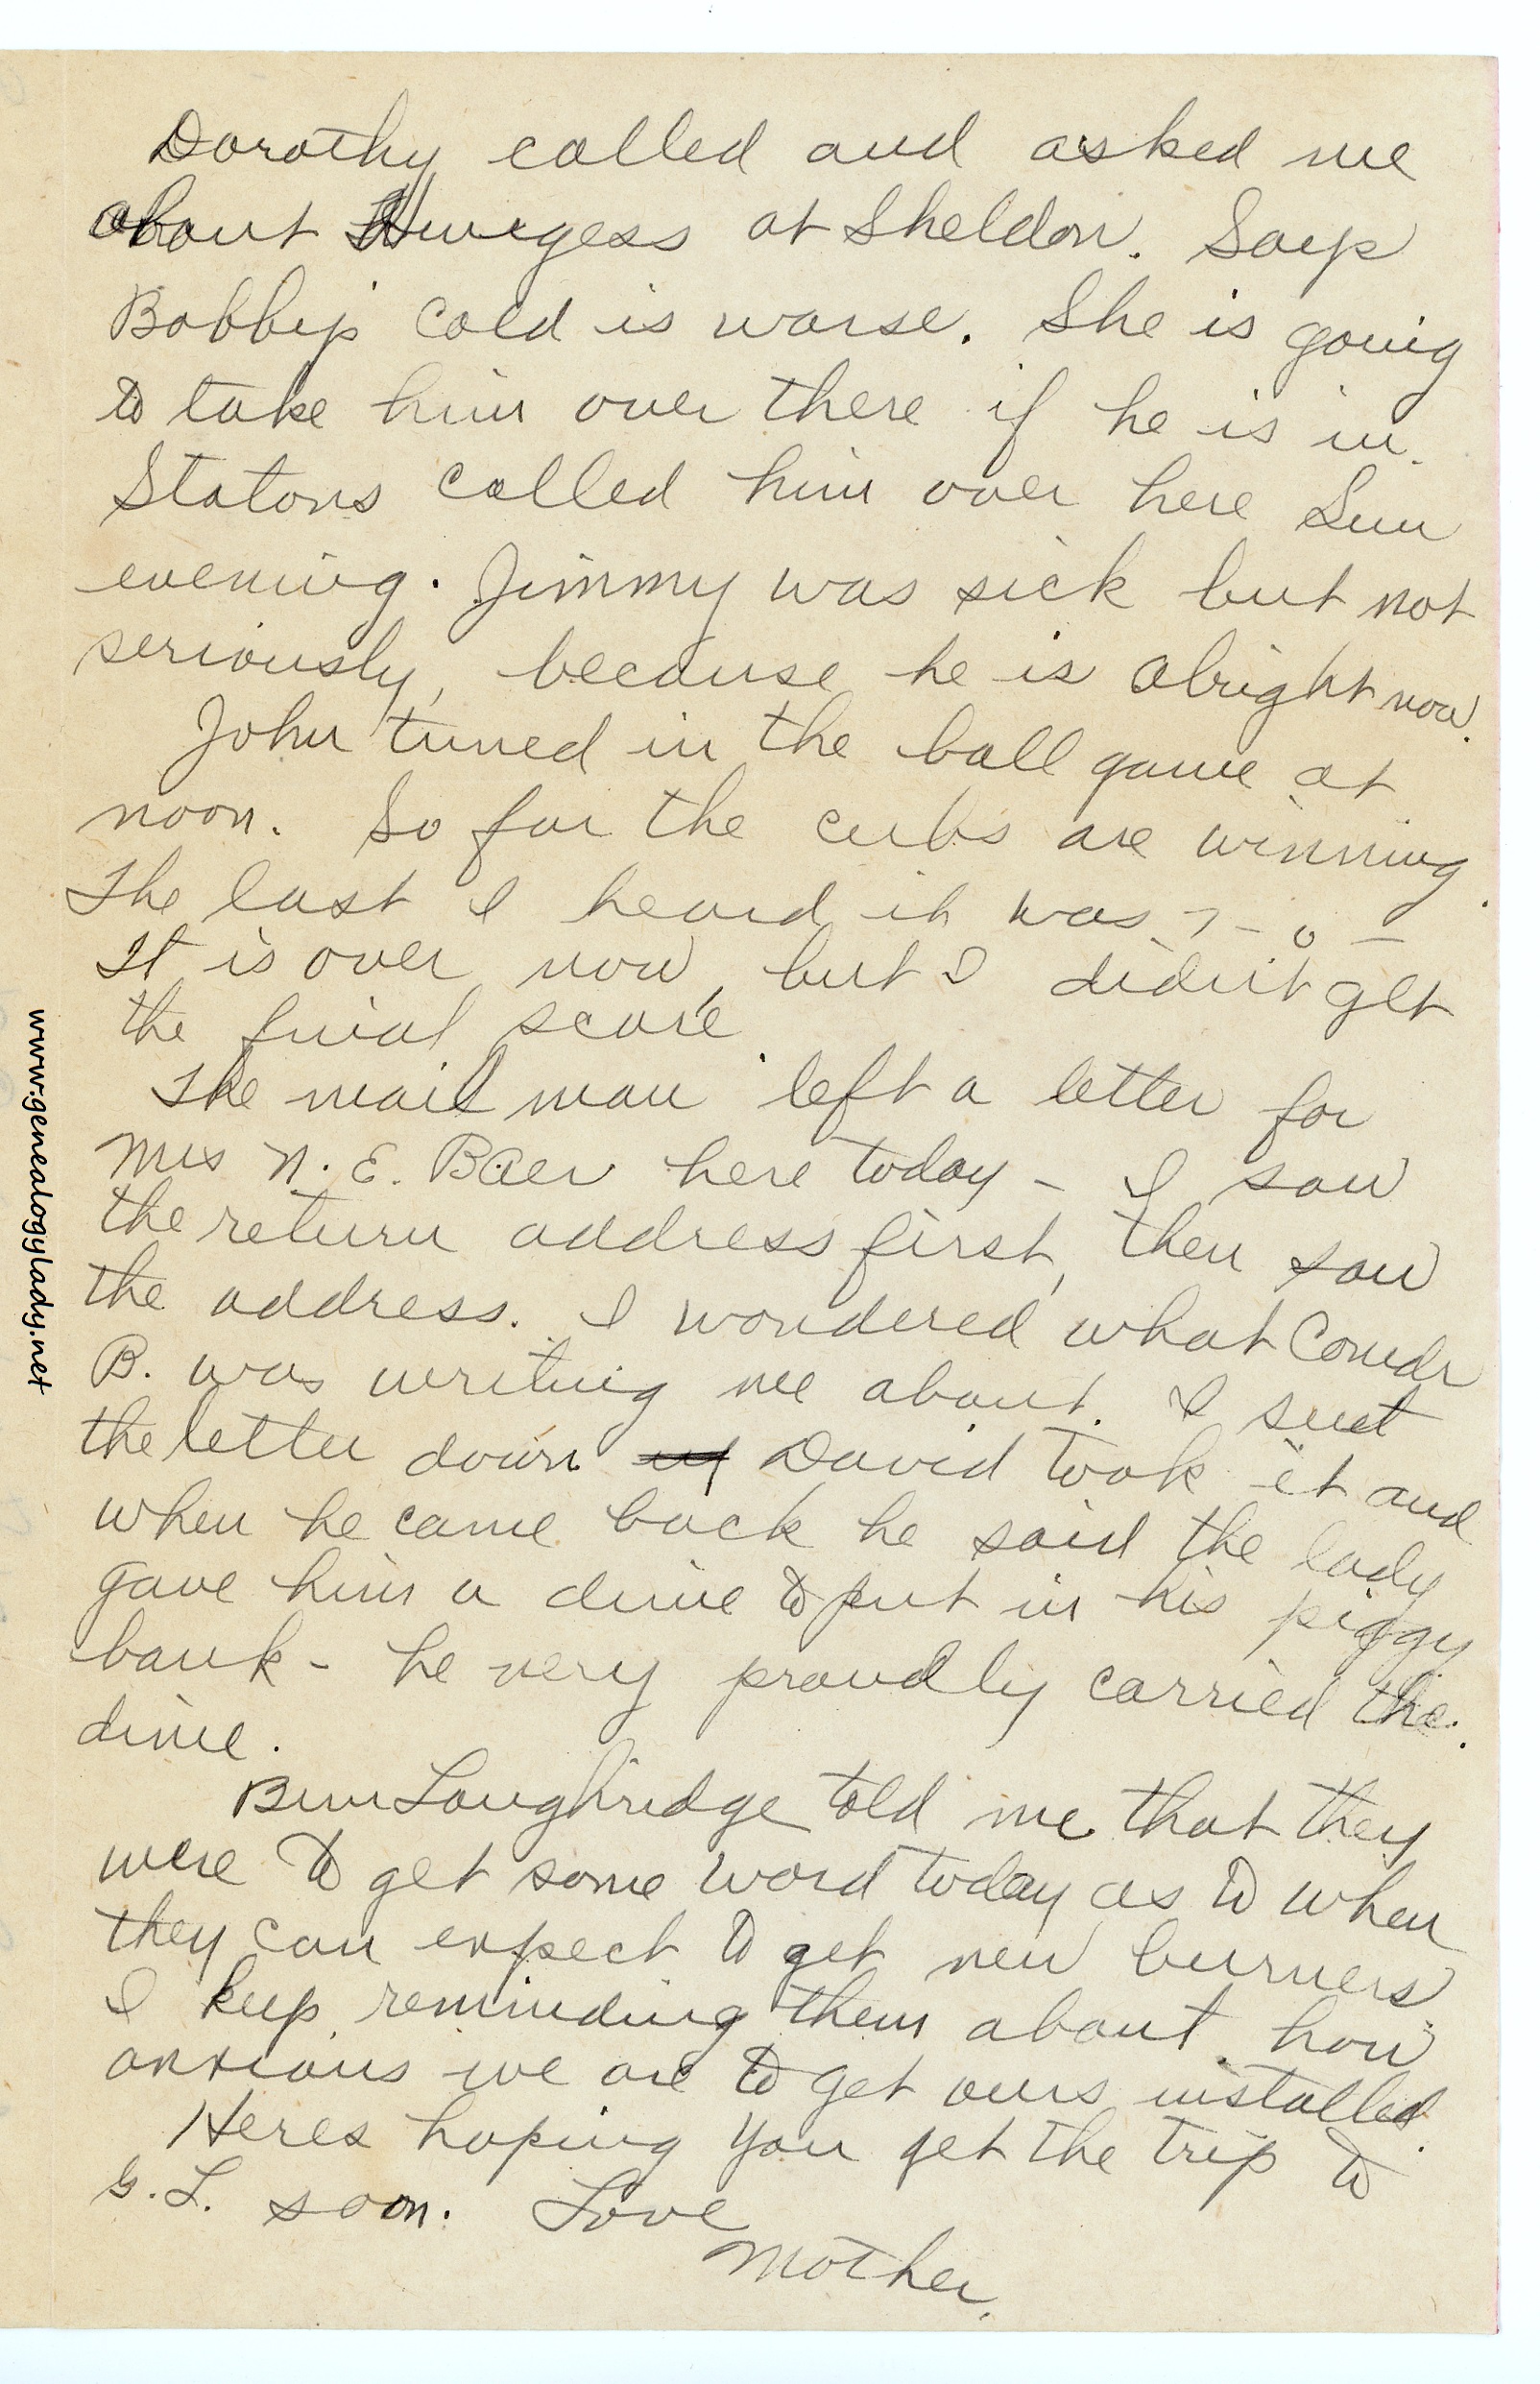 Dorothy called and asked me
about at Sheldon. Says
Bobby's cold is worse. She is going
to take him over there if he is in.
Statons called him over here Sun
evening. Jimmy was sick but not
seriously, because he is alright now.
John tuned in the ball game at
noon. So far the cubs are winning.
The last I heard it was 7-0-
It is over now, but I didn't get
the final score.
The mail man left a letter for
Mrs N. E. Baer here today - I saw
the return address first, then saw
the address. I wondered what Comdr
B. was writing me about. I sent
the letter down David took it and
when he came back he said the lady
gave him a dime to put in his piggy
bank - he very proudly carried the
dime.
told me that they
were to get some word today as to when
they can expect to get new burners
I keep reminding them about how
anxious we are to get ours installed.
Heres hoping you get the trip to
G.L. soon. Love
Mother.
www.genealogylady.net